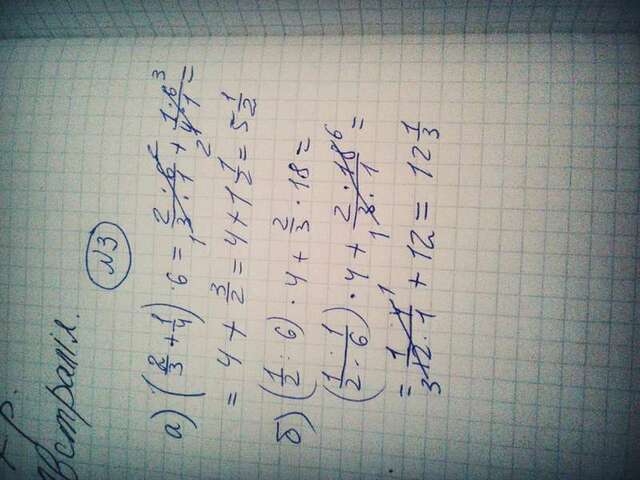 Австралія.
№3
а) (2/3 + 1/4) · 6 = 2 · 6 / 3 · 1 + 1 · 6 3 / 2 4 · 1 =
= 4 + 3/2 = 4 + 1 1/2 = 5 1/2
б) (1/2 : 6) · 4 + 2/3 · 18 =
(1 · 1 / 2 · 6) · 4 + 2 · 18 6 / 1 3 · 1 =
= 1 · 4 1 / 3 12 · 1 + 12 = 12 1/3